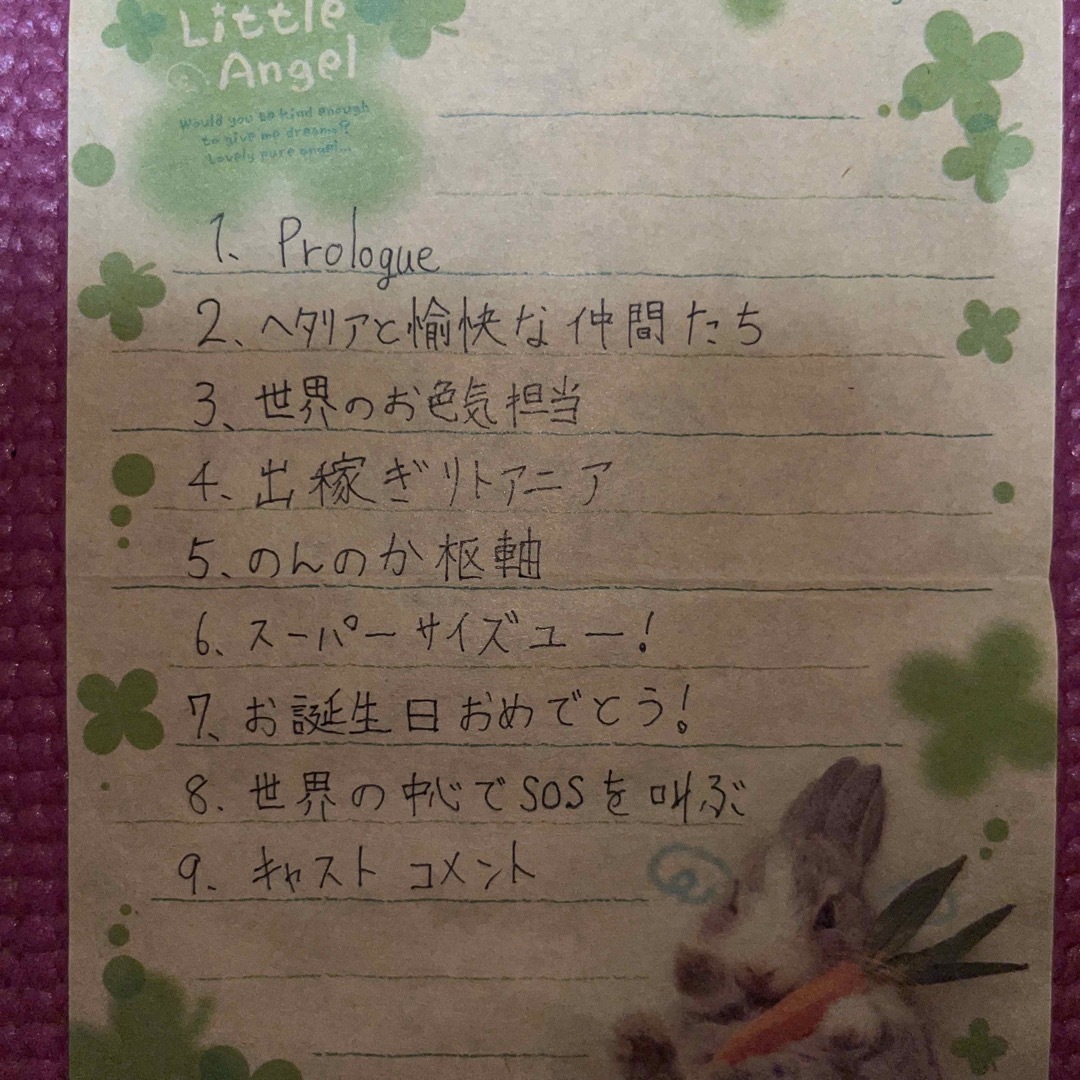 Little
Angel
Would you be kind enough
to give me dreams?
Lovely pure angel...
1. Prologue
2、ヘタリアと愉快な仲間たち
3、世界のお色気担当
4、出稼ぎリトアニア
5、のんのか枢軸
6、スーパーサイズユー!
7、お誕生日おめでとう!
8、世界の中心でSOSを叫ぶ
9、キャストコメント